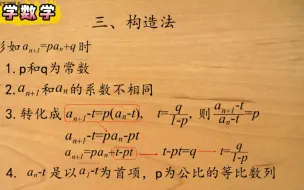 学数学
三、构造法
形如 aₙ₊₁=paₙ+q时
1. p和q为常数
2. aₙ₊₁和aₙ的系数不相同
3. 转化成 aₙ₊₁-t=p(aₙ-t), t=q/(1-p), 则 (aₙ₊₁-t)/(aₙ-t)=p
aₙ₊₁-t=paₙ-pt
aₙ₊₁=paₙ+t-pt → t-pt=q → t=q/(1-p)
4. aₙ-t 是以 a₁-t 为首项, p为公比的等比数列